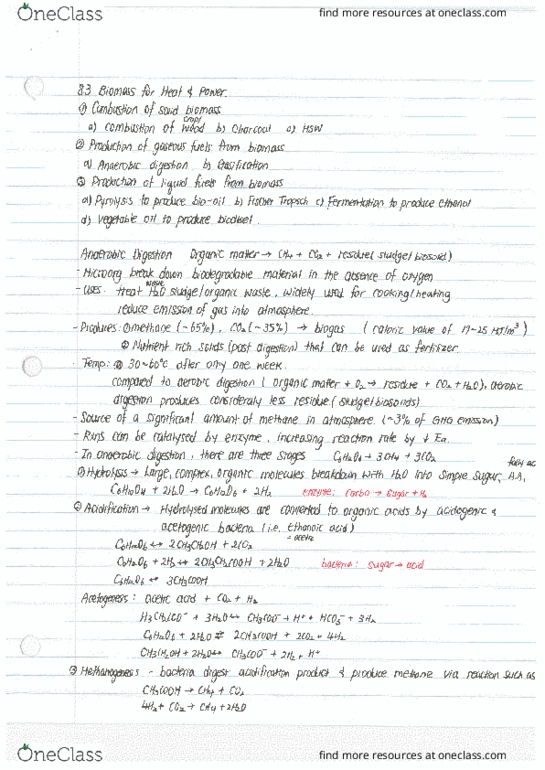 OneClass
find more resources at oneclass.com
8.3 Biomass for Heat & Power.
① Combustion of solid biomass
crop/
a) combustion of wood b) Charcoal c) MSW
② Production of gaseous fuels from biomass
a) Anaerobic digestion b) Gasification
③ Production of liquid fuels from biomass
a) Pyrolysis to produce bio-oil b) Fischer Tropsch c) Fermentation to produce ethanol
d) Vegetable oil to produce biodiesel.
Anaerobic Digestion Organic matter → CH4 + CO2 + residue ( sludge/biosolid)
- Microorg break down biodegradable material in the absence of oxygen
waste
- Uses: treat H2O sludge/organic waste, widely used for cooking/heating
reduce emission of gas into atmosphere.
- Produces: ① methane (~65%), CO2 (~35%) → biogas ( caloric value of 17~25 MJ/m³)
② Nutrient rich solids (post digestion) that can be used as fertilizer.
- Temp: @ 30~60°C after only one week.
compared to aerobic digestion ( organic matter + O2 → residue + CO2 + H2O), aerobic
digestion produces considerably less residue (sludge/biosolids)
- Source of a significant amount of methane in atmosphere. (~3% of GHG emission)
- Runs can be catalysed by enzyme, increasing reaction rate by ↓ Ea.
- In anaerobic digestion, there are three stages C6H12O6 → 3CH4 + 3CO2
fatty ac
① Hydrolysis → Large, complex, organic molecules breakdown with H2O into simple sugar, A.A,
C6H10O4 + 2H2O → C6H12O6 + 2H2 enzyme: carbo → sugar + H2
② Acidification → Hydrolysed molecules are converted to organic acids by acidogenic &
acetogenic bacteria (i.e. Ethanoic acid)
= acetic
C6H12O6 ↔ 2CH3CH2OH + 2CO2
C6H12O6 + 2H2 ↔ 2CH3CH2COOH + 2H2O bacteria: sugar → acid
C6H12O6 ↔ 3CH3COOH
Acetogenesis: acetic acid + CO2 + H2
H3CH2CO⁻ + 3H2O ↔ CH3COO⁻ + H⁺ + HCO3⁻ + 3H2
C6H12O6 + 2H2O ⇌ 2CH3COOH + 2CO2 + 4H2
CH3CH2OH + 2H2O ↔ CH3COO⁻ + 2H2 + H⁺
③ Methanogenesis - bacteria digest acidification product & produce methane via reaction such as
CH3COOH → CH4 + CO2
4H2 + CO2 → CH4 + 2H2O
OneClass
find more resources at oneclass.com